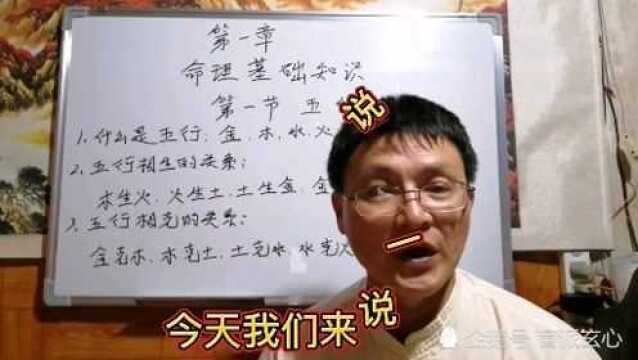 第一章
命理基础知识
第一节 五
1、什么是五行、金、木、水、火
2、五行相生的关系;
木生火、火生土、土生金、金
3、五行相克的关系:
金克木、木克土、土克水、水克火
说
一
今天我们来说
企鹅号
玄心